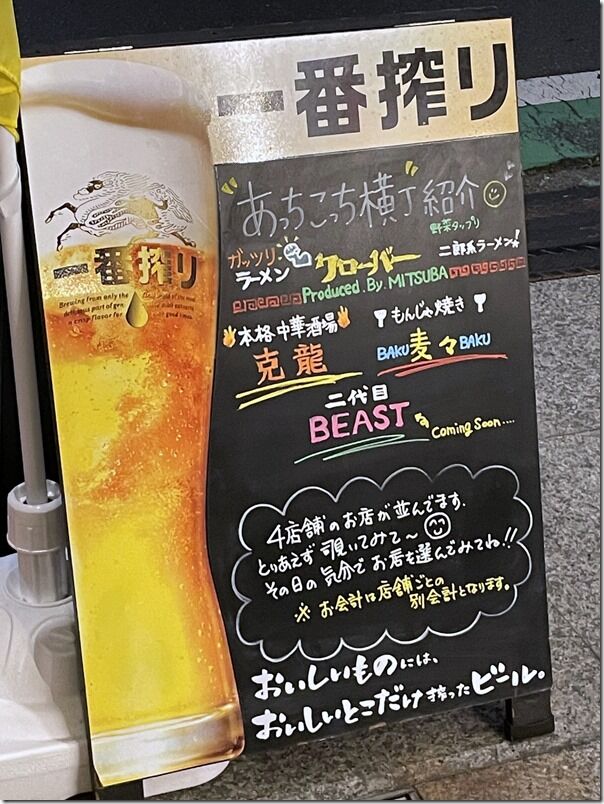 一番搾り
一番搾り
Brewing from only the
delicious part of gen
a crisp flavor for
good times.
"あっちこっち横丁"紹介
野菜タップリ
ガッツリ
ラーメン
クローバー
二郎系ラーメン!
Produced By MITSUBA
本格中華酒場
克龍
もんじゃ焼き
BAKU麦々BAKU
二代目
BEAST
Coming Soon....
4店舗のお店が並んでます、
とりあえず覗いてみて〜
その日の気分でお店を選んでみてね!!
※お会計は店舗ごとの
別会計となります。
おいしいものには、
おいしいとこだけ搾ったビール。